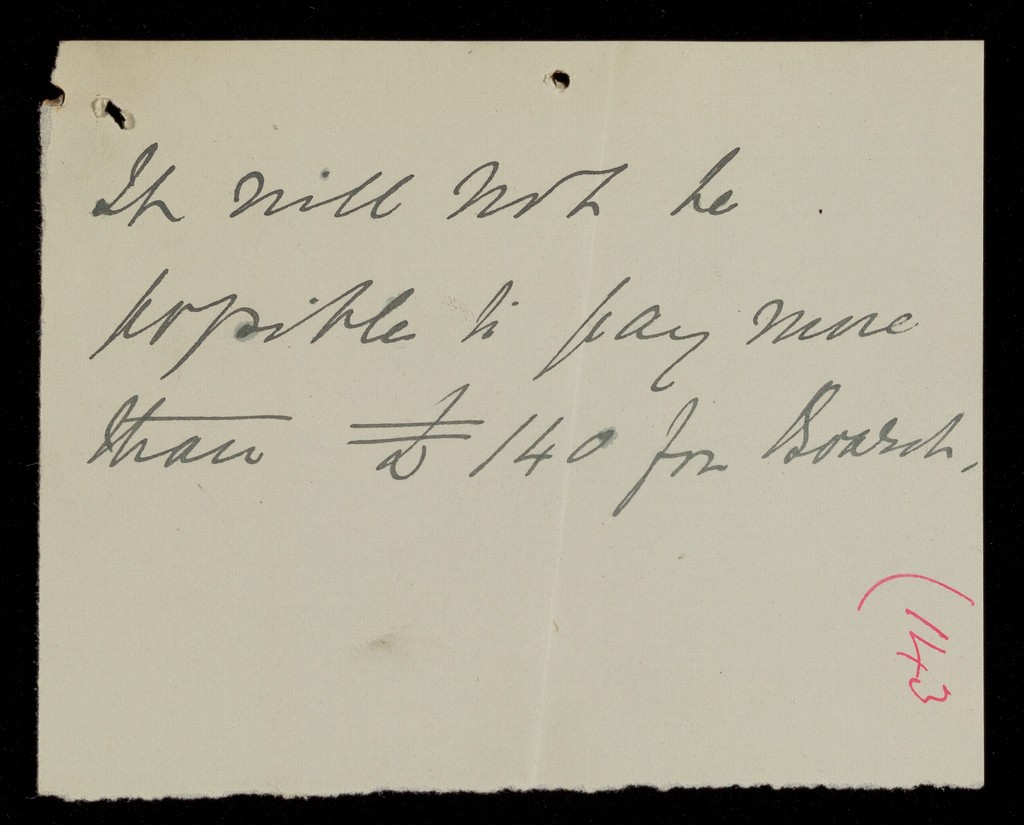 It will not be
possible to pay more
than £140 for Board.
(143